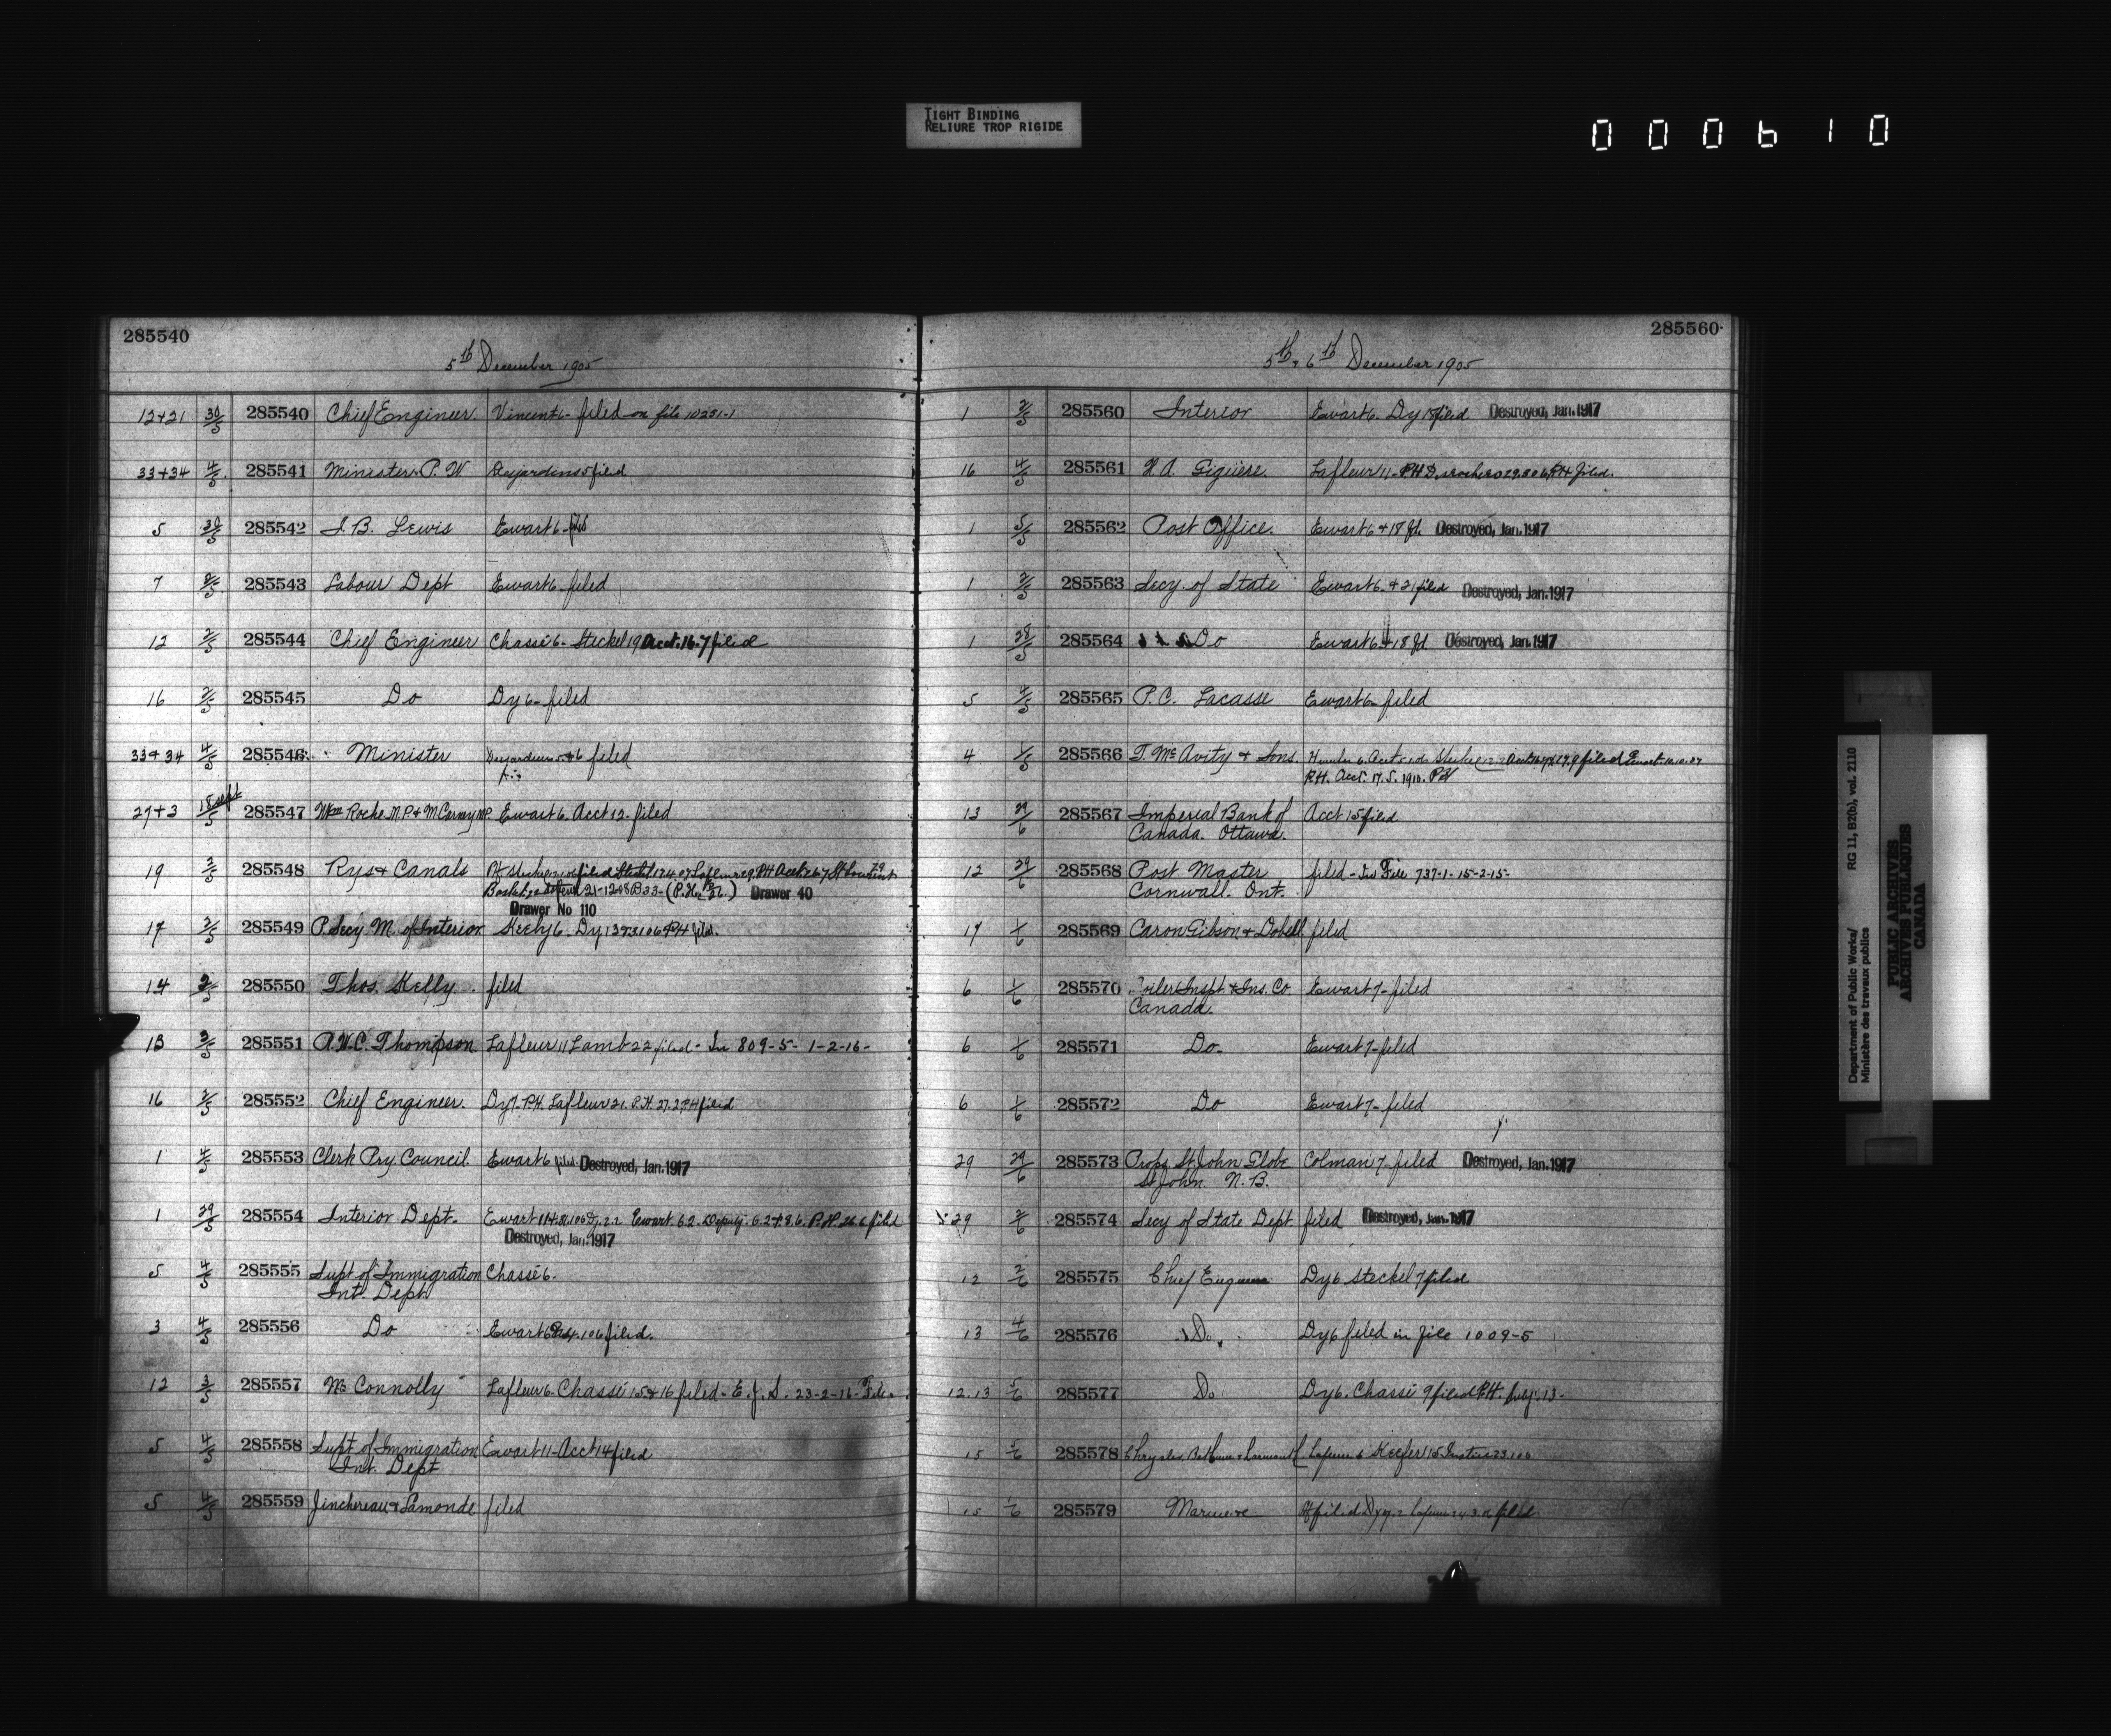 TIGHT BINDING
RELIURE TROP RIGIDE
000610
285540
5th December 1905
12+21 30/5 285540 Chief Engineer Vincent 6- filed on file 10281-1
33+34 4/5 285541 Minister P. W Desjardins 5 filed
5 30/5 285542 J. B. Lewis Ewart 6- filed
7 285543 Labour Dept Ewart 6- filed
12 2/5 285544 Chief Engineer Chassé 6- Steckel 19 Acct. 16-7 filed
16 2/5 285545 Do Dy 6- filed
33+34 4/5 285546 Minister Desjardins 5+6 filed
27+3 18 Sept/5 285547 Wm Roche M.P. & McCarney M.P. Ewart 6. Acct 12- filed
19 3/5 285548 Rys & Canals filed
21-12-08 B 33- (P.H. ) Drawer 40
Drawer No 110
17 2/5 285549 P. Secy. M. of Interior Keely 6- Dy. PH filed
14 2/5 285550 Thos. Kelly. filed
13 3/5 285551 A.W.C. Thompson Lafleur 11 Lamb 22 filed- In 809-5- 1-2-16-
16 2/5 285552 Chief Engineer. Dy 7- P.H. Lafleur 21. P.H. filed
1 4/5 285553 Clerk Pry. Council Ewart 6 filed. Destroyed, Jan. 1917
1 29/5 285554 Interior Dept. Ewart Ewart 6.2. Deputy. P.H. 26.6 filed
Destroyed, Jan. 1917
5 4/5 285555 Supt of Immigration Chassé 6.
Int. Dept
3 4/5 285556 Do Ewart filed.
12 3/5 285557 Mc Connolly Lafleur 6- Chassé 15 & 16 filed- E. J. S. 23-2-16- File.
5 4/5 285558 Supt of Immigration Ewart 11- Acct 14 filed
Int. Dept
5 4/5 285559 Jinchereau & Lamonde filed
285560
5th & 6th December 1905
1 2/5 285560 Interior Ewart 6. Dy 18 filed Destroyed, Jan. 1917
16 4/5 285561 H. A. Giguère. Lafleur 11- PH PH filed.
1 5/5 285562 Post Office. Ewart 6 + 18 fd. Destroyed, Jan. 1917
1 2/5 285563 Secy of State Ewart 6. + 21 filed Destroyed, Jan. 1917
1 28/5 285564 Do Ewart 6 + 18 fd. Destroyed, Jan. 1917
5 4/5 285565 P. C. Lacasse Ewart 6- filed
4 1/5 285566 T. McAvity & Sons. Hunter 6. Acct filed Ewart 10.10.07
P.H. Acct. 17. 5. 1910. PH
13 29/6 285567 Imperial Bank of Acct 15 filed
Canada. Ottawa.
12 29/6 285568 Post Master filed- File 737-1- 15-2-15-
Cornwall. Ont.
17 1/6 285569 Caron Gibson & Dobell filed
6 1/6 285570 Boiler Inspt. & Ins. Co Ewart 7- filed
Canada.
6 1/6 285571 Do. Ewart 7- filed
6 1/6 285572 Do Ewart 7- filed
29 29/6 285573 Props St. John Globe Colman 7- filed Destroyed, Jan. 1917
St John. N.B.
29 2/6 285574 Secy of State Dept filed Destroyed, Jan. 1917
12 2/6 285575 Chief Engineer Dy 6 Steckel 7 filed
13 4/6 285576 Do. Dy 6 filed in file 1009-5
12.13 5/6 285577 Do Dy 6. Chassé 9 filed P.H. 13-
15 5/6 285578 Chrysler, Bethune & Larmonth Lafleur 6 Keefer 115
15 1/6 285579 Marine filed
Department of Public Works/
Ministère des travaux publics
RG 11, B2(b), vol. 2110
PUBLIC ARCHIVES
ARCHIVES PUBLIQUES
CANADA